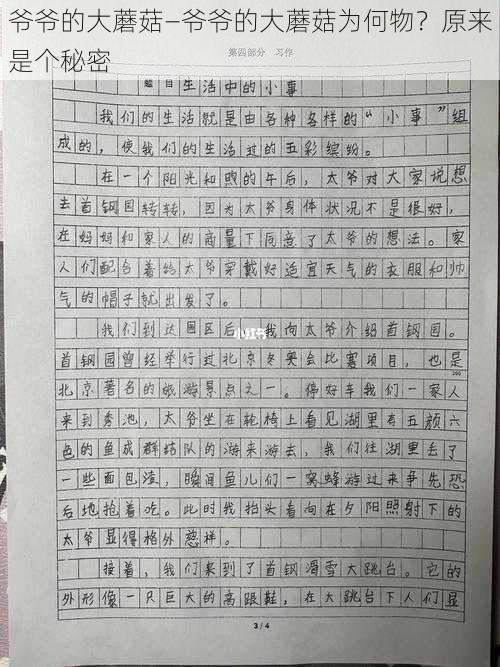 爷爷的大蘑菇—爷爷的大蘑菇为何物？原来
是个秘密
第四部分 习作
题目生活中的小事
我们的生活就是由各种各样的“小事”组
成的，使我们的生活过的五彩缤纷。
在一个阳光和煦的午后，太爷对大家说想
去首钢园转转，因为太爷身体状况不是很好，
在妈妈和家人的商量下同意了太爷的想法。家
人们配合着给太爷穿戴好适宜天气的衣服和帅
气的帽子就出发了。
我们到达园区后，我向太爷介绍首钢园。
小红书
首钢园曾经举行过北京冬奥会比赛项目，也是
200
北京著名的旅游景点之一。停好车我们一家人
来到秀池，太爷坐在轮椅上看见湖里有五颜六
色的鱼成群结队的游来游去，我们往湖里丢了
一些面包渣，瞬间鱼儿们一窝蜂游过来争先恐
后地抢着吃。此时我抬头看向在夕阳照射下的
太爷显得格外慈祥。
接着，我们来到了首钢滑雪大跳台。它的
外形像一只巨大的高跟鞋，在大跳台下人们显
3 / 4